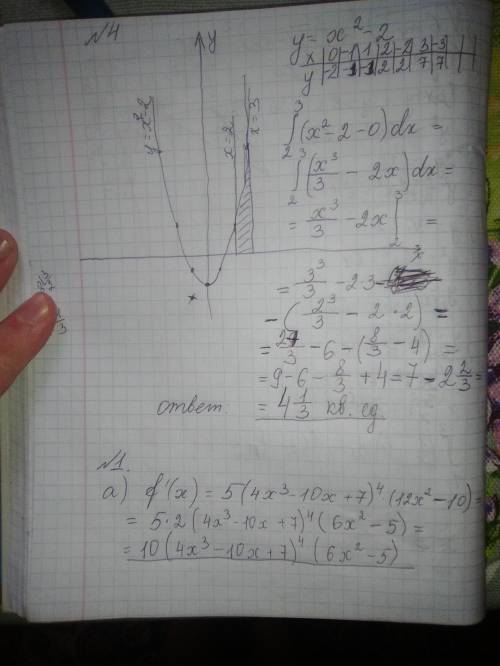 №4
y = x² - 2
x | 0 | -1 | 1 | 2 | -2 | 3 | -3
y | -2 | -1 | -1 | 2 | 2 | 7 | 7
y
y = x² - 2
x = 2
x = 3
x
∫₂³ (x² - 2 - 0) dx =
∫₂³ (x³/3 - 2x) dx =
= x³/3 - 2x |₂³ =
= 3³/3 - 2·3 -
- (2³/3 - 2·2) =
= 27/3 - 6 - (8/3 - 4) =
= 9 - 6 - 8/3 + 4 = 7 - 2 2/3 =
ответ: = 4 1/3 кв. ед
№1.
а) f'(x) = 5(4x³ - 10x + 7)⁴ · (12x² - 10) =
= 5·2 (4x³ - 10x + 7)⁴ (6x² - 5) =
= 10 (4x³ - 10x + 7)⁴ (6x² - 5)